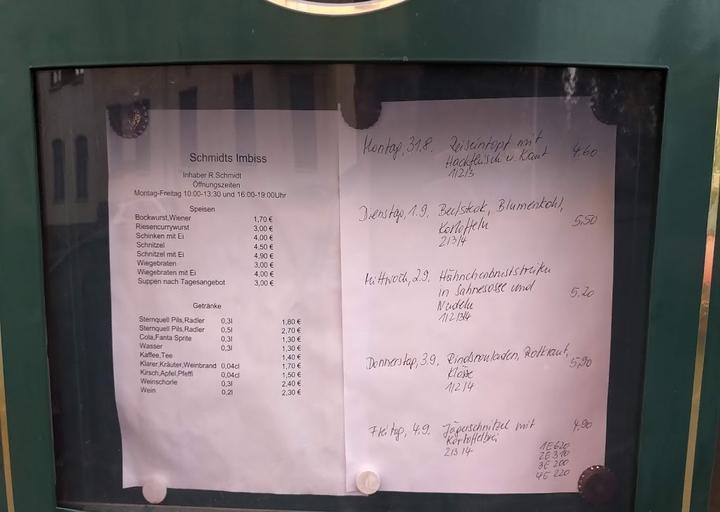 Schmidts Imbiss
Inhaber R.Schmidt
Öffnungszeiten
Montag-Freitag 10:00-13:30 und 16:00-19:00Uhr
Speisen
Bockwurst,Wiener 1,70 €
Riesencurrywurst 3,00 €
Schinken mit Ei 4,00 €
Schnitzel 4,50 €
Schnitzel mit Ei 4,90 €
Wiegebraten 3,00 €
Wiegebraten mit Ei 4,00 €
Suppen nach Tagesangebot 3,00 €
Getränke
Sternquell Pils,Radler 0,3l 1,80 €
Sternquell Pils,Radler 0,5l 2,70 €
Cola,Fanta Sprite 0,3l 1,30 €
Wasser 0,3l 1,30 €
Kaffee,Tee 1,40 €
Klarer,Kräuter,Weinbrand 0,04cl 1,70 €
Kirsch,Apfel,Pfeffi 0,04cl 1,50 €
Weinschorle 0,3l 2,40 €
Wein 0,2l 2,30 €
Montag, 31.8. Reiseintopf mit 4,60
Hackfleisch u. Kraut
1/2/3
Dienstag, 1.9. Beefsteak, Blumenkohl, 5,50
Kartoffeln
2/3/4
Mittwoch, 2.9. Hähnchenbruststreifen
in Sahnesoße und 5,20
Nudeln
1/2/3/4
Donnerstag, 3.9. Rindsrouladen, Rotkraut, 5,90
Klöße
1/2/4
Freitag, 4.9. Jägerschnitzel mit 4,90
Kartoffelbrei
2/3/4
1E 620
2E 310
3E 200
4E 220